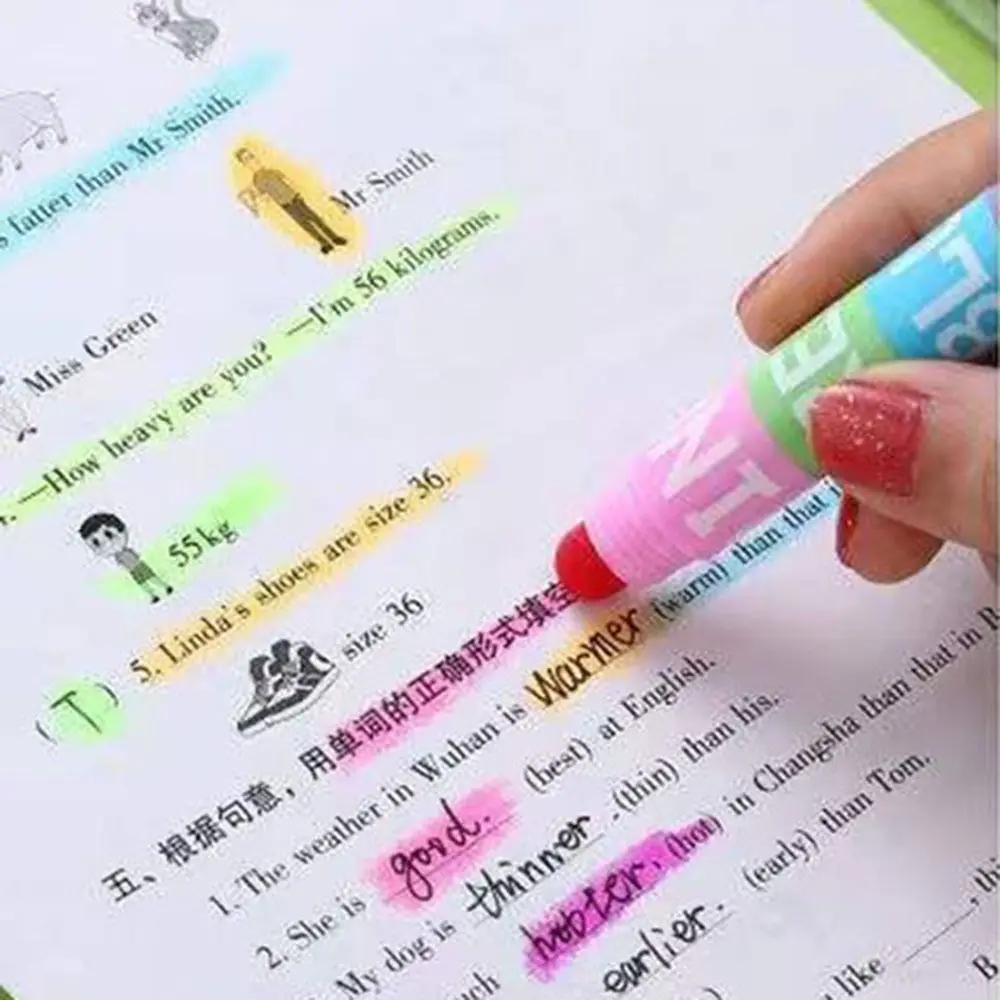 fatter than Mr Smith.
Mr Smith
Miss Green
—How heavy are you? —I'm 56 kilograms.
55 kg
(T) 5. Linda's shoes are size 36.
size 36
五、根据句意，用单词的正确形式填空
1. The weather in Wuhan is warmer (warm) than that
2. She is good. (best) at English.
My dog is thinner. (thin) than his.
hotter. (hot) in Changsha than that in
earlier. (early) than Tom.
like